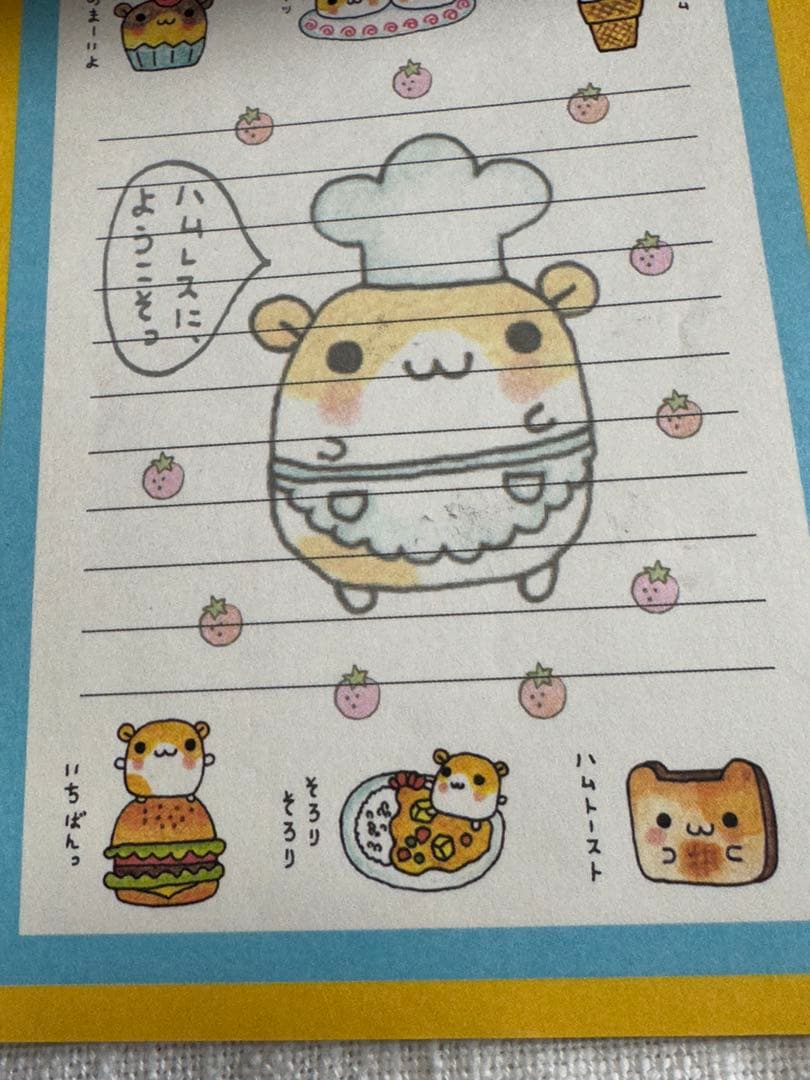 まーいよ
ッ
ム
ハムトスに、
ようこそっ
いちばんっ
そろり
そろり
ハムトースト